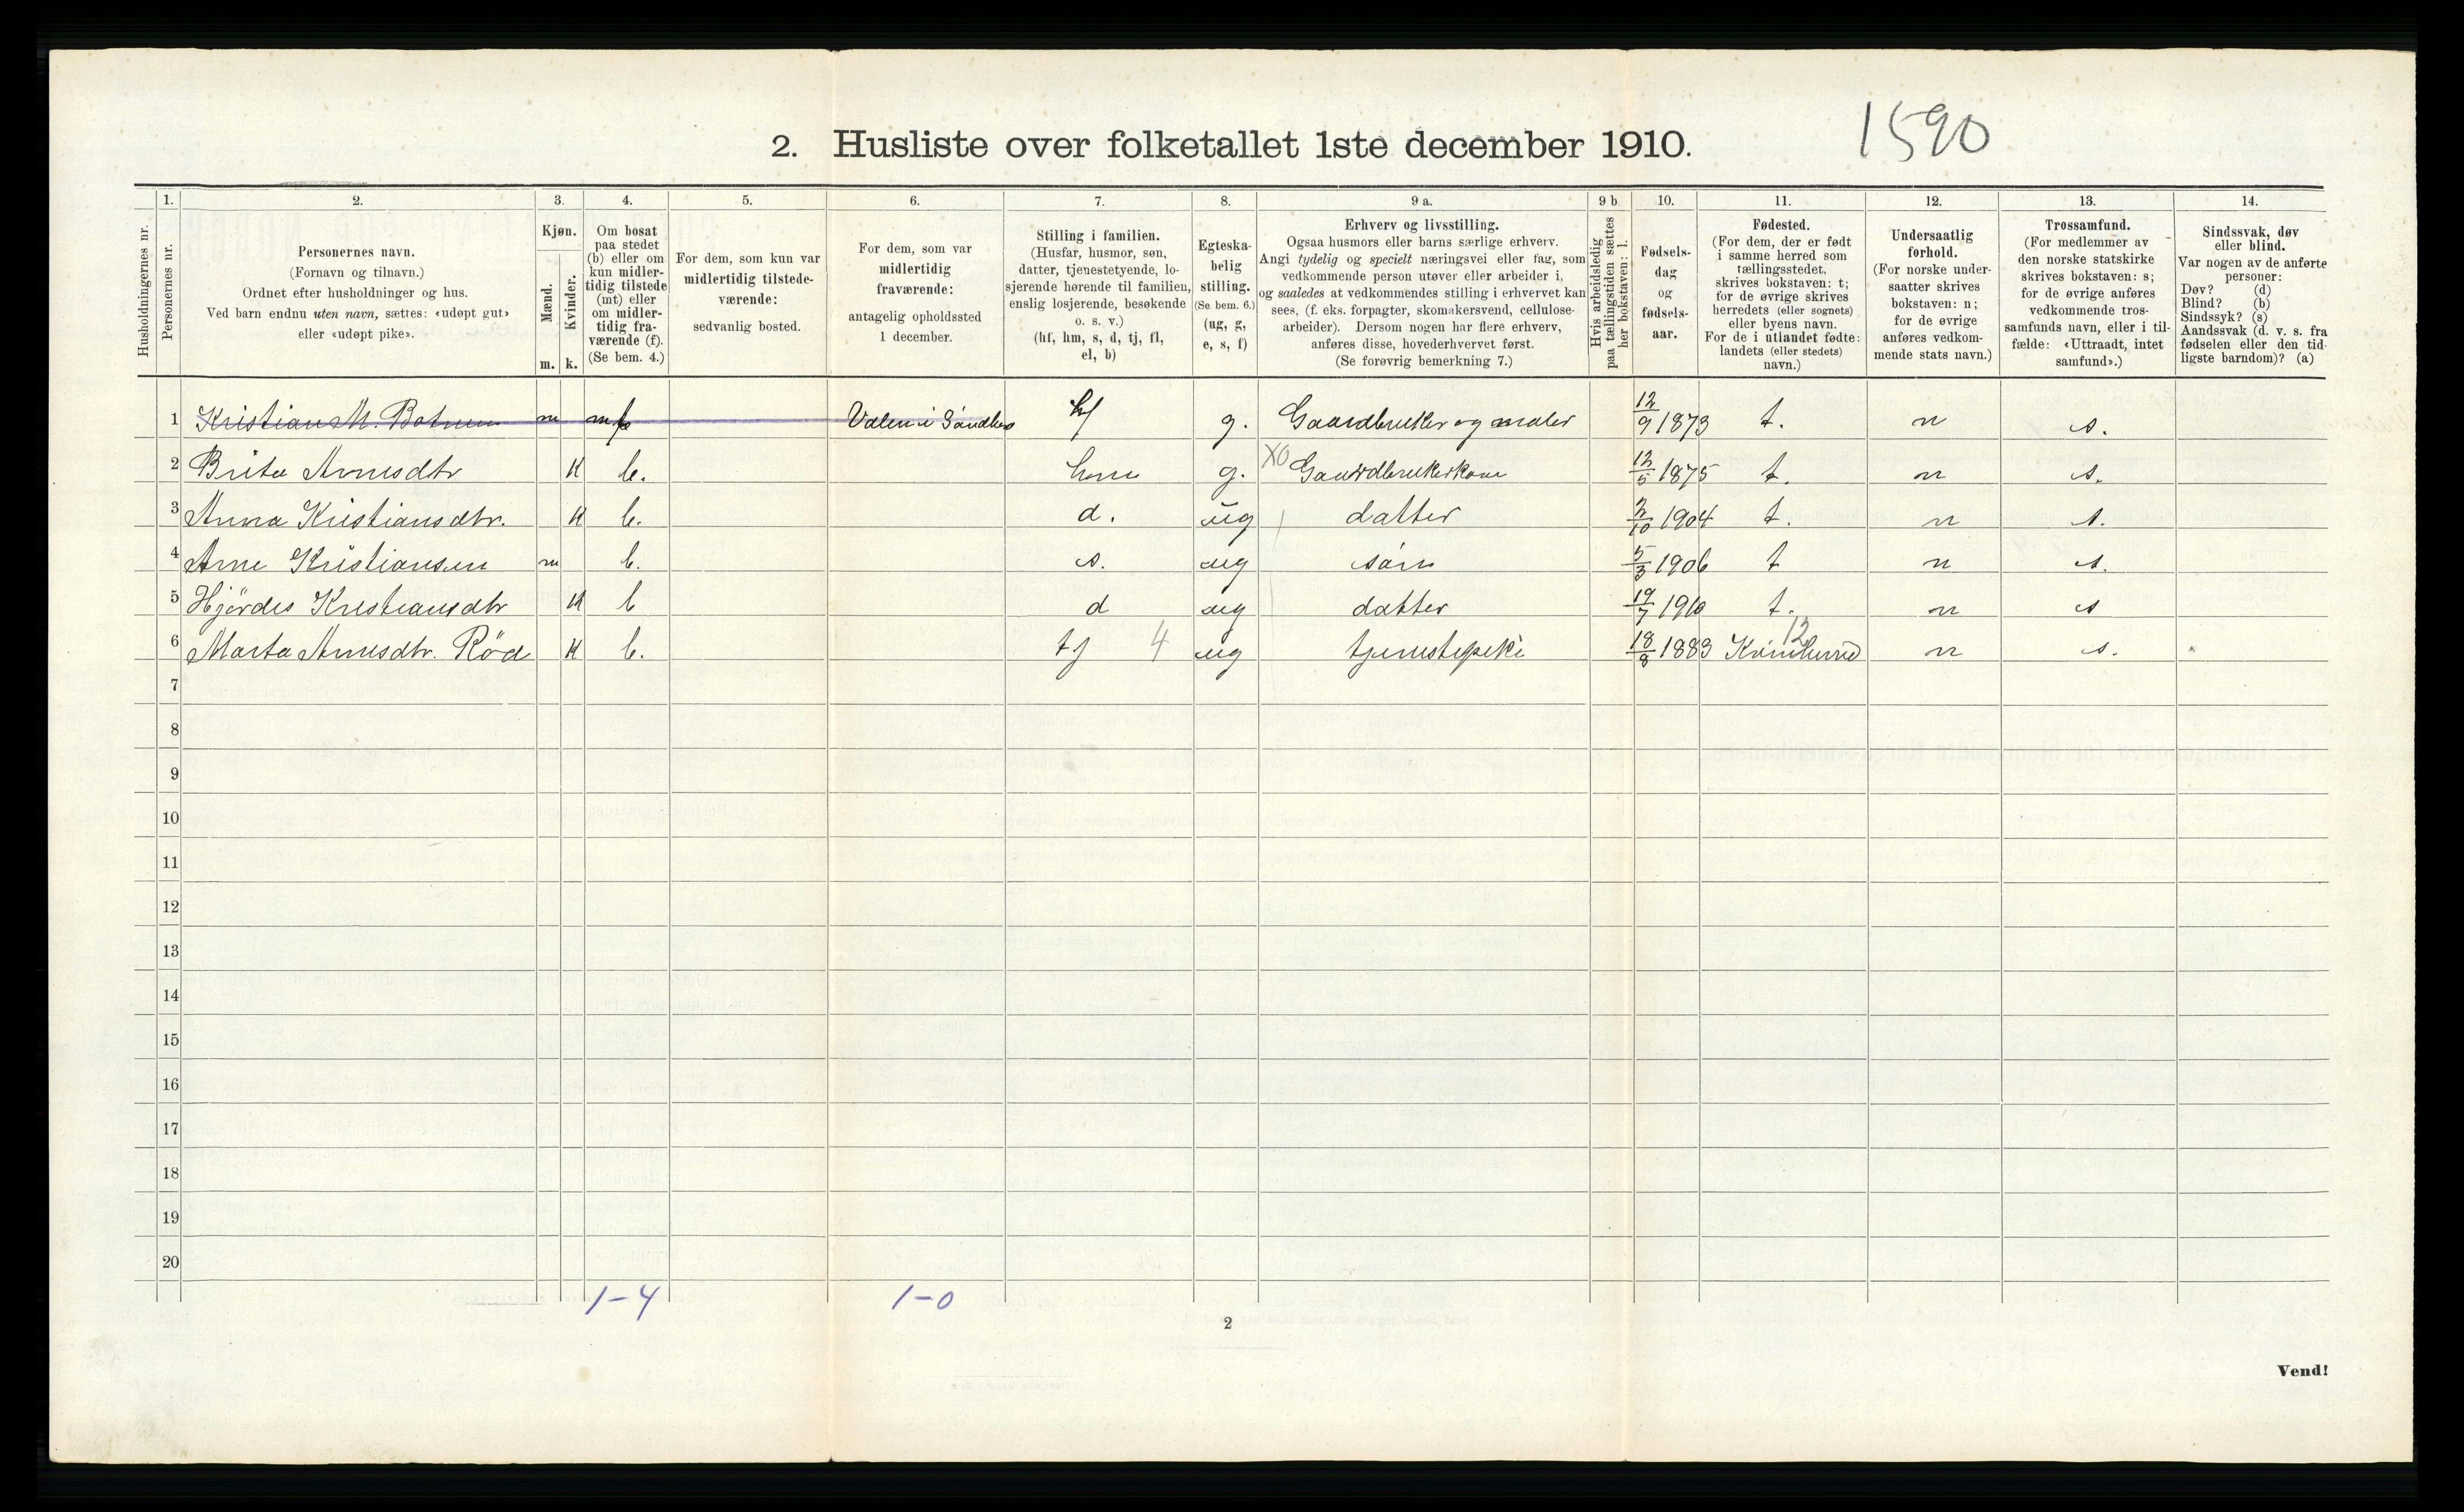 1590
2. Husliste over folketallet 1ste december 1910.
Husholdningernes nr.
1.
Personernes nr.
2.
Personernes navn.
(Fornavn og tilnavn.)
Ordnet efter husholdninger og hus.
Ved barn endnu uten navn, sættes: «udøpt gut»
eller «udøpt pike».
3.
Kjøn.
Mænd.
Kvinder.
m. k.
4.
Om bosat
paa stedet
(b) eller om
kun midler-
tidig tilstede
(mt) eller
om midler-
tidig fra-
værende (f).
(Se bem. 4.)
5.
For dem, som kun var
midlertidig tilstede-
værende:
sedvanlig bosted.
6.
For dem, som var
midlertidig
fraværende:
antagelig opholdssted
1 december.
7.
Stilling i familien.
(Husfar, husmor, søn,
datter, tjenestetyende, lo-
sjerende hørende til familien,
enslig losjerende, besøkende
o. s. v.)
(hf, hm, s, d, tj, fl,
el, b)
8.
Egteska-
belig
stilling.
(Se bem. 6.)
(ug, g,
e, s, f)
9 a.
Erhverv og livsstilling.
Ogsaa husmors eller barns særlige erhverv.
Angi tydelig og specielt næringsvei eller fag, som
vedkommende person utøver eller arbeider i,
og saaledes at vedkommendes stilling i erhvervet kan
sees, (f. eks. forpagter, skomakersvend, cellulose-
arbeider). Dersom nogen har flere erhverv,
anføres disse, hovederhvervet først.
(Se forøvrig bemerkning 7.)
9 b
Hvis arbeidsledig
paa tællingstiden sættes
her bokstaven: l.
10.
Fødsels-
dag
og
fødsels-
aar.
11.
Fødested.
(For dem, der er født
i samme herred som
tællingsstedet,
skrives bokstaven: t;
for de øvrige skrives
herredets (eller sognets)
eller byens navn.
For de i utlandet fødte:
landets (eller stedets)
navn.)
12.
Undersaatlig
forhold.
(For norske under-
saatter skrives
bokstaven: n;
for de øvrige
anføres vedkom-
mende stats navn.)
13.
Trossamfund.
(For medlemmer av
den norske statskirke
skrives bokstaven: s;
for de øvrige anføres
vedkommende tros-
samfunds navn, eller i til-
fælde: «Uttraadt, intet
samfund».)
14.
Sindssvak, døv
eller blind.
Var nogen av de anførte
personer:
Døv? (d)
Blind? (b)
Sindssyk? (s)
Aandssvak (d. v. s. fra
fødselen eller den tid-
ligste barndom)? (a)
1 Kristian M. Botnen m Valen i hf g. Gaardbruker og maler 12/9 1873 t. n s.
2 Brita Arnesdtr K b. hm g. XO Gaardbrukerkone 12/5 1875 t. n s.
3 Anna Kristiansdtr. K b. d. ug datter 2/10 1904 t. n s.
4 Arne Kristiansen m b. s. ug søn 5/3 1906 t n s.
5 Hjördis Kristiansdtr K b d ug datter 19/7 1910 t. n s
6 Marta Arnesdtr. Röd K b. tj 4 ug tjenestepike 18/8 1883 Kvinherred 12 n s.
7
8
9
10
11
12
13
14
15
16
17
18
19
20
1-4 1-0
2
Vend!